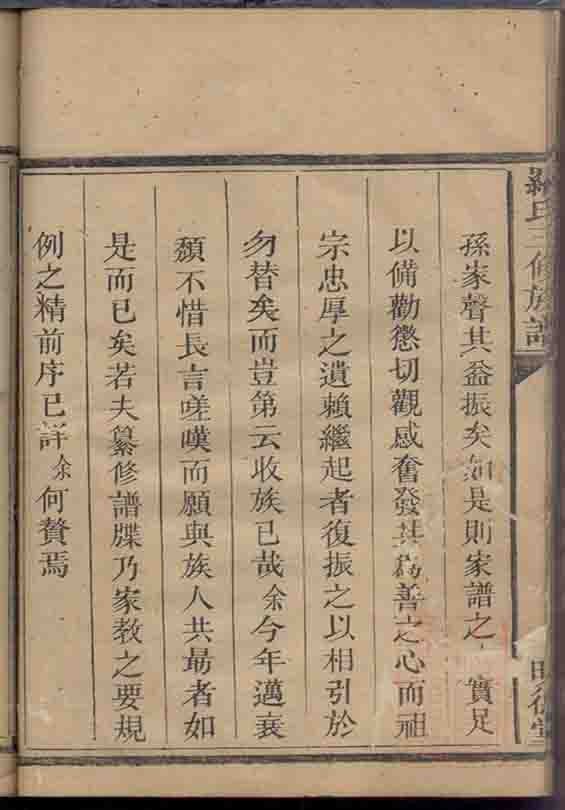 羅氏三修族譜
孫家聲其益振矣如是則家譜之實足
以備勸懲切觀感奮發其為善之心而祖
宗忠厚之遺賴繼起者復振之以相引於
勿替矣而豈第云收族已哉余今年邁衰
頹不惜長言嗟嘆而願與族人共勗者如
是而已矣若夫纂修譜牒乃家教之要規
例之精前序已詳余何贅焉